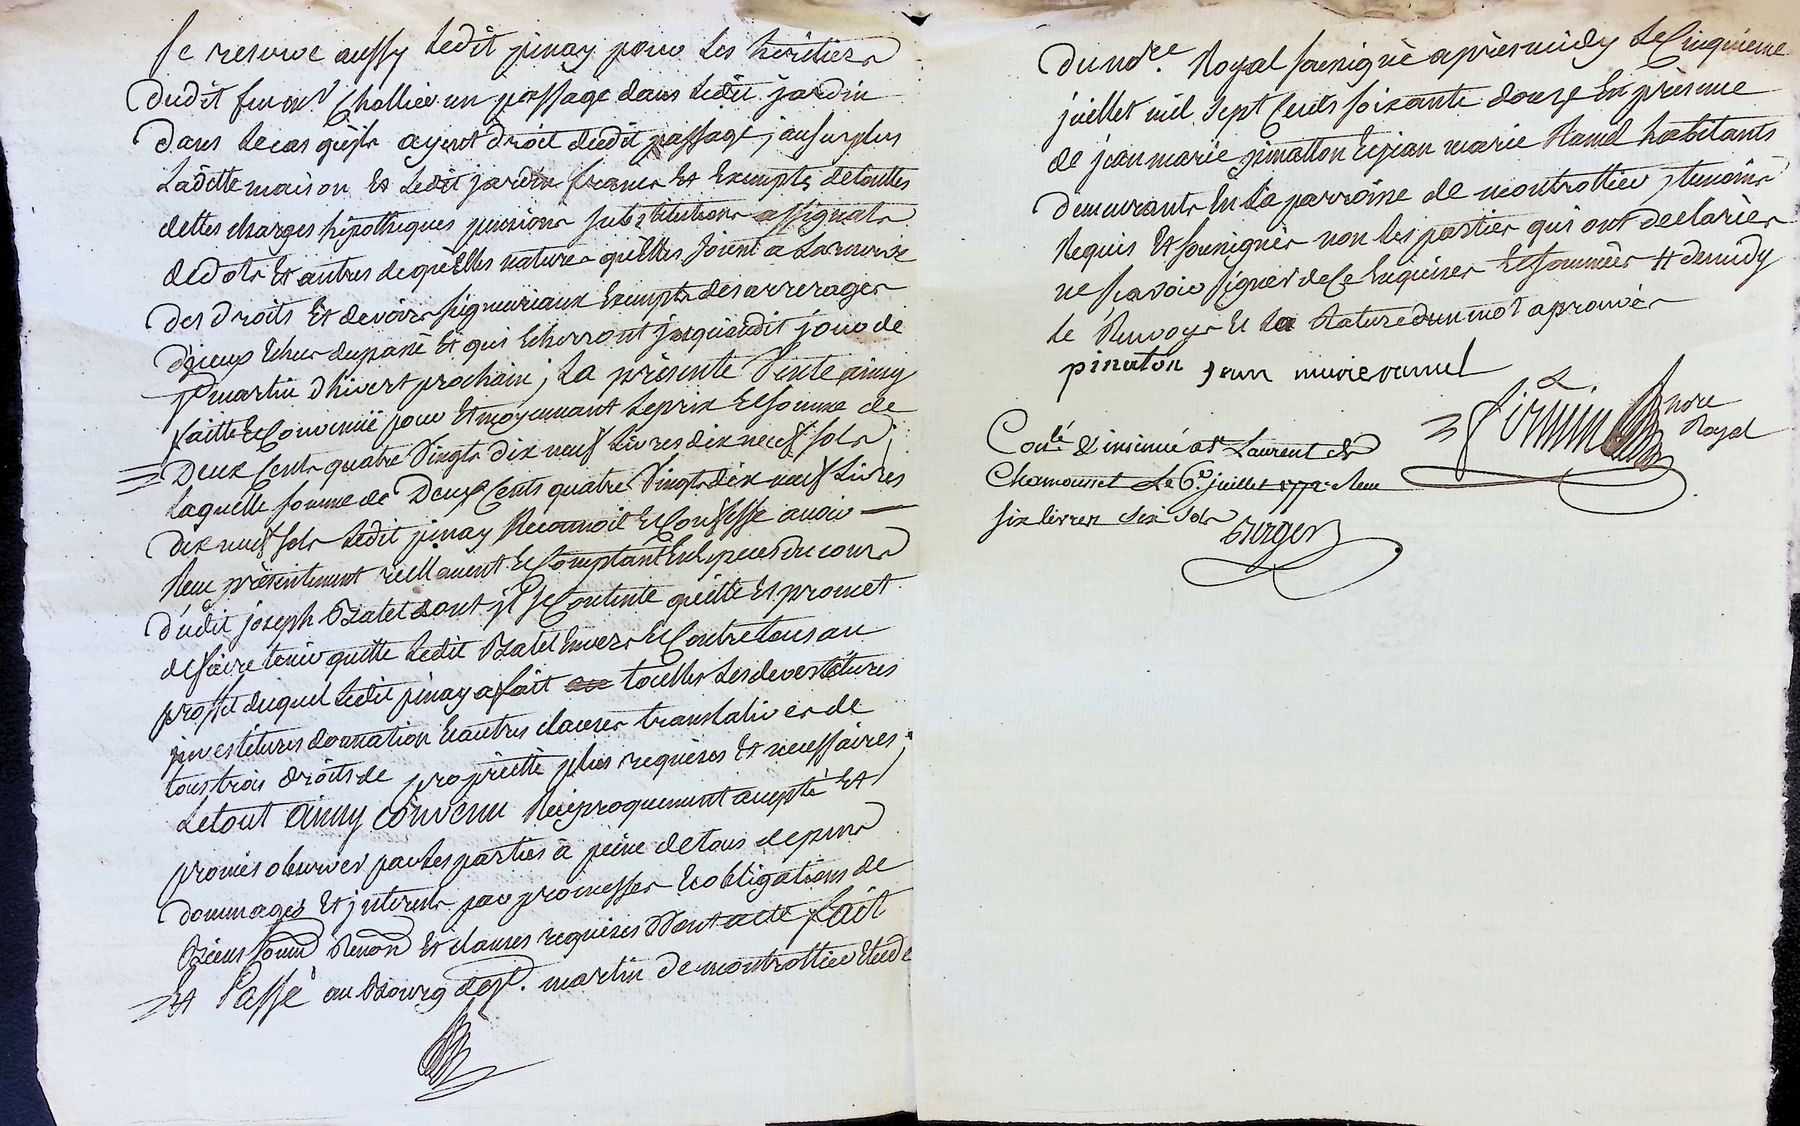 Se reserve aussy ledit pinay pour les heritiers
dudit feu Chollier un passage dans ledit jardin
dans le cas quils ayent droit dudit passage, au surplus
laditte maison et ledit jardin francs et exempts de touttes
dettes charges hipotheques pensions substitutions assignats
de dots et autres de quelles natures quelles soient a la reserve
des droits et devoirs seigneuriaux exempts des arrerages
diceux echus du passé et qui echerront jusquaudit jour de
St martin dhivert prochain, la presente Vente ainsy
faitte et Convenüe pour et moyennant le prix et somme de
Deux Cents quatre Vingts dix neuf livres dix neuf sols,
laquelle somme de Deux Cents quatre Vingts dix neuf livres
dix neuf sols ledit pinay Reconnoit et Confesse avoir
Reçu présentement réellement et Comptant en especes du cours
dudit joseph Balet dont il se Contente quitte et promet
de faire tenir quitte ledit Balet envers et Contre tous au
proffit duquel ledit pinay a fait touttes les devestitures
jnvestitures donnation et autres clauses translatives de
tous trois droits de proprietté plus requises et necessaires,
le tout ainsy convenu Reciproquement accepté et
promis observer par les parties à peine de tous depens
dommages et jnterests par promesses et obligations de
Biens soum Renon et clauses requises Dont acte fait
# Passé au Bourg de St. martin de montrottier etude
du nore. Royal soussigné après midy Le Cinquieme
juillet mil sept Cents soixante douze En présence
de jean marie pinatton et jean marie Ramel habitants
demeurants En la parroisse de montrottier, temoins
Requis et soussignés non les parties qui ont declarées
ne scavoir signer de ce enquises et sommées # de midy
le Renvoye et la Rature dun mot aprouvés
pinaton jean marie ramel
Firmin nore
Royal
Conlé & insinué a St Laurent de
Chamousset Le 6e. juillet 1772. Reçu
six livres six Sols
Berger